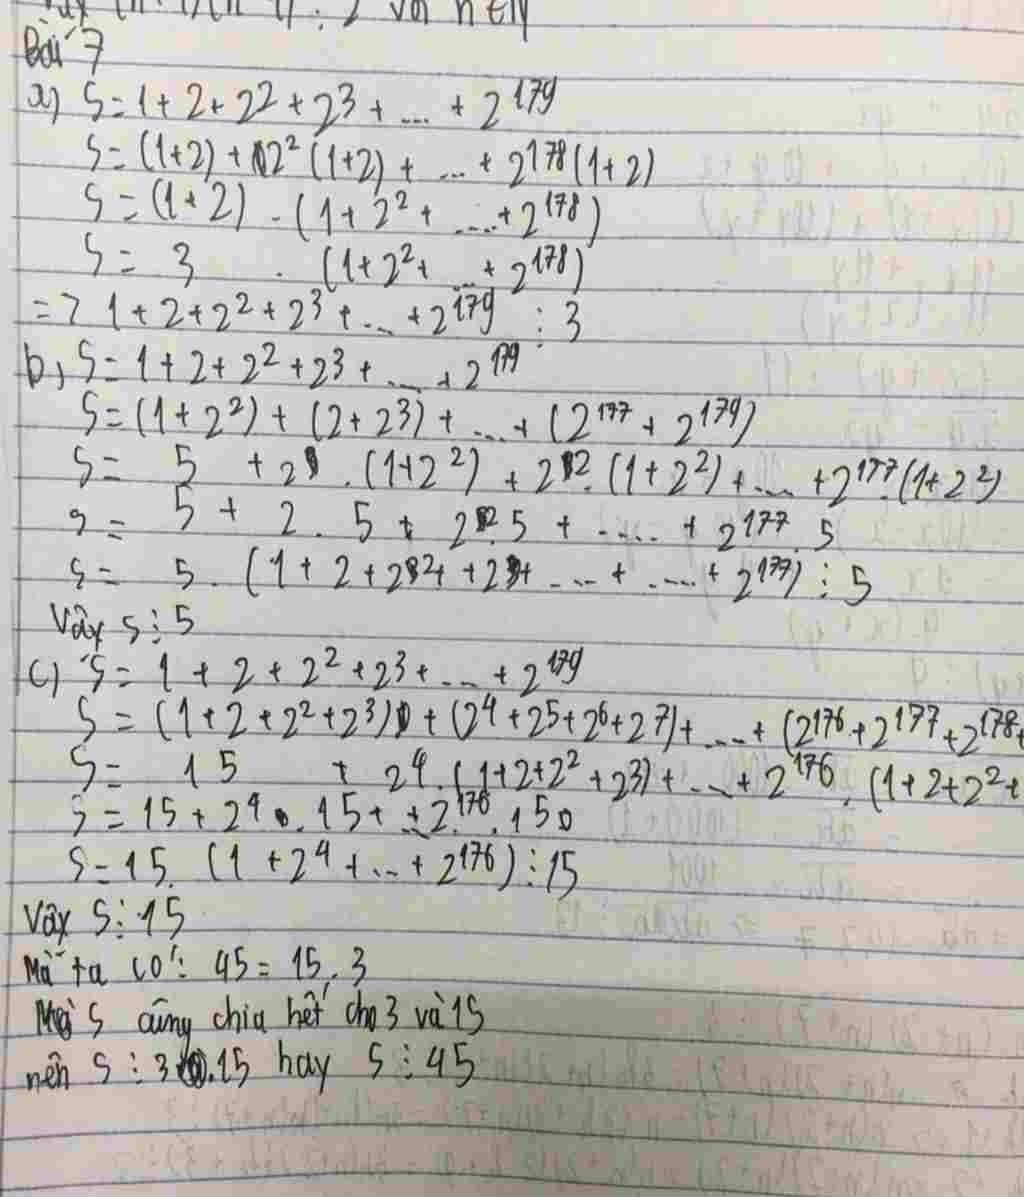 Bài 7
a) S = 1 + 2 + 2² + 2³ + ... + 2¹⁷⁹
S = (1+2) + 2² (1+2) + ... + 2¹⁷⁸ (1+2)
S = (1+2) . (1 + 2² + ... + 2¹⁷⁸)
S = 3 . (1 + 2² + ... + 2¹⁷⁸)
=> 1 + 2 + 2² + 2³ + ... + 2¹⁷⁹ ⋮ 3
b) S = 1 + 2 + 2² + 2³ + ... + 2¹⁷⁹
S = (1 + 2²) + (2 + 2³) + ... + (2¹⁷⁷ + 2¹⁷⁹)
S = 5 + 2 . (1+2²) + 2² . (1+2²) + ... + 2¹⁷⁷ . (1+2²)
S = 5 + 2 . 5 + 2² . 5 + ... + 2¹⁷⁷ . 5
S = 5 . (1 + 2 + 2² + + 2 + ... + ... + 2¹⁷⁷) ⋮ 5
Vây S ⋮ 5
c) S = 1 + 2 + 2² + 2³ + ... + 2¹⁷⁹
S = (1 + 2 + 2² + 2³) + (2⁴ + 2⁵ + 2⁶ + 2⁷) + ... + (2¹⁷⁶ + 2¹⁷⁷ + 2¹⁷⁸ +
S = 15 + 2⁴ . (1 + 2 + 2² + 2³) + ... + 2¹⁷⁶ . (1 + 2 + 2² +
S = 15 + 2⁴ . 15 + ... + 2¹⁷⁶ . 15
S = 15 . (1 + 2⁴ + ... + 2¹⁷⁶) ⋮ 15
Vây S ⋮ 15
Mà ta có : 45 = 15 . 3
Mà S cũng chia hết cho 3 và 15
nên S ⋮ 3 . 15 hay S ⋮ 45